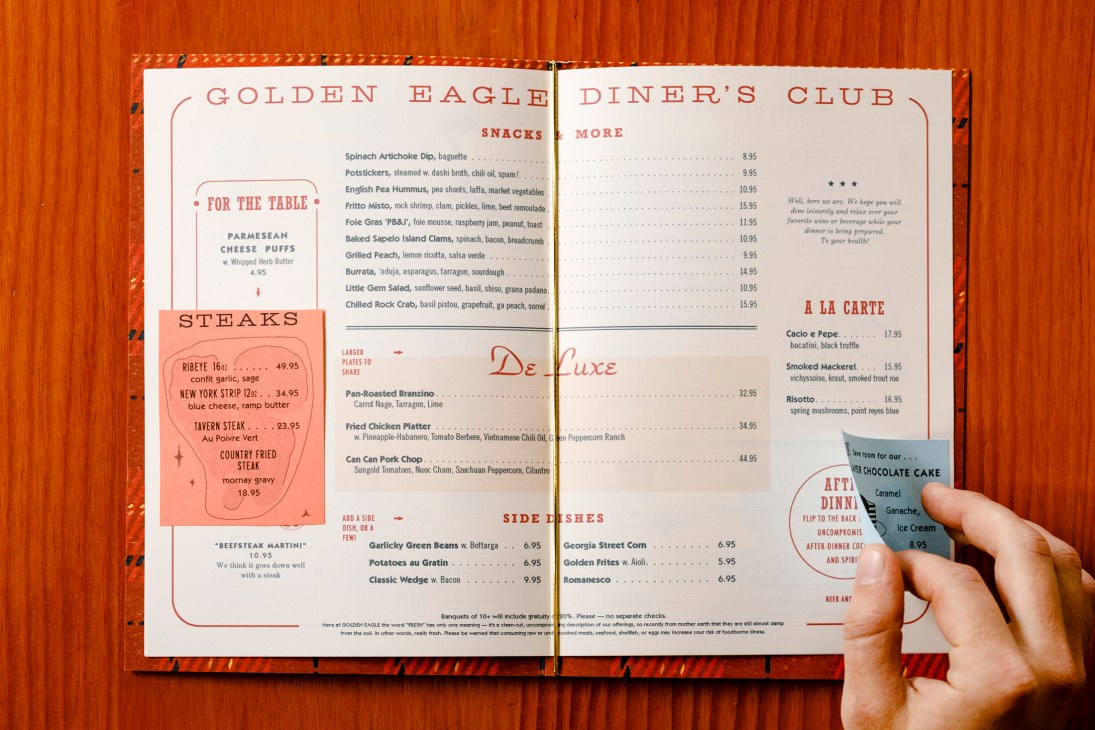 GOLDEN EAGLE DINER'S CLUB
SNACKS & MORE
Spinach Artichoke Dip, baguette 8.95
Potstickers, steamed w. dashi broth, chili oil, spam! 9.95
English Pea Hummus, pea shoots, laffa, market vegetables 10.95
Fritto Misto, rock shrimp, clam, pickles, lime, beet remoulade 15.95
Foie Gras 'PB&J', foie mousse, raspberry jam, peanut, toast 11.95
Baked Sapelo Island Clams, spinach, bacon, breadcrumb 10.95
Grilled Peach, lemon ricotta, salsa verde 9.95
Burrata, 'nduja, asparagus, tarragon, sourdough 14.95
Little Gem Salad, sunflower seed, basil, shiso, grana padano 10.95
Chilled Rock Crab, basil pistou, grapefruit, ga peach, sorrel 15.95
FOR THE TABLE
PARMESEAN
CHEESE PUFFS
w. Whipped Herb Butter
4.95
STEAKS
RIBEYE 16oz 49.95
confit garlic, sage
NEW YORK STRIP 12oz 34.95
blue cheese, ramp butter
TAVERN STEAK 23.95
Au Poivre Vert
COUNTRY FRIED
STEAK
mornay gravy
18.95
"BEEFSTEAK MARTINI"
10.95
We think it goes down well
with a steak
LARGER
PLATES TO
SHARE
De Luxe
Pan-Roasted Branzino 32.95
Carrot Nage, Tarragon, Lime
Fried Chicken Platter 34.95
w. Pineapple-Habanero, Tomato Berbere, Vietnamese Chili Oil, Green Peppercorn Ranch
Can Can Pork Chop 44.95
Sungold Tomatoes, Nuoc Cham, Szechuan Peppercorn, Cilantro
ADD A SIDE
DISH, OR A
FEW!
SIDE DISHES
Garlicky Green Beans w. Bottarga 6.95
Potatoes au Gratin 6.95
Classic Wedge w. Bacon 9.95
Georgia Street Corn 6.95
Golden Frites w. Aioli 5.95
Romanesco 6.95
* * *
Well, here we are. We hope you will
dine leisurely and relax over your
favorite wine or beverage while your
dinner is being prepared.
To your health!
A LA CARTE
Cacio e Pepe 17.95
bucatini, black truffle
Smoked Mackerel 15.95
vichyssoise, kraut, smoked trout roe
Risotto 16.95
spring mushrooms, point reyes blue
room for our . . .
CHOCOLATE CAKE
Caramel
Ganache,
Ice Cream
8.95
FLIP TO THE BACK
AFTER-DINNER
BEER AND
Banquets of 10+ will include gratuity of 20%. Please — no separate checks.
Here at GOLDEN EAGLE the word "FRESH" has only one meaning — it's a clean-cut, uncompromising description of our offerings, so recently from mother earth that they are still almost damp
from the soil. In other words, really fresh. Please be warned that consuming raw or undercooked meats, seafood, shellfish, or eggs may increase your risk of foodborne illness.